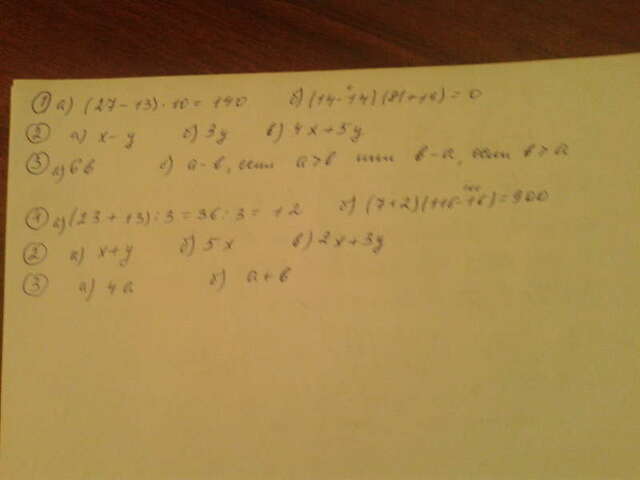 ① а) (27-13)·10=140 б) (14-14)(81+16)=0
② а) x-y б) 3y в) 4x+5y
③ а) 6в б) а-в, если а>в или в-а, если в>а
① а) (23+13):3=36:3=12 б) (7+2)(116-16)=900
② а) x+y б) 5x в) 2x+3y
③ а) 4а б) а+в